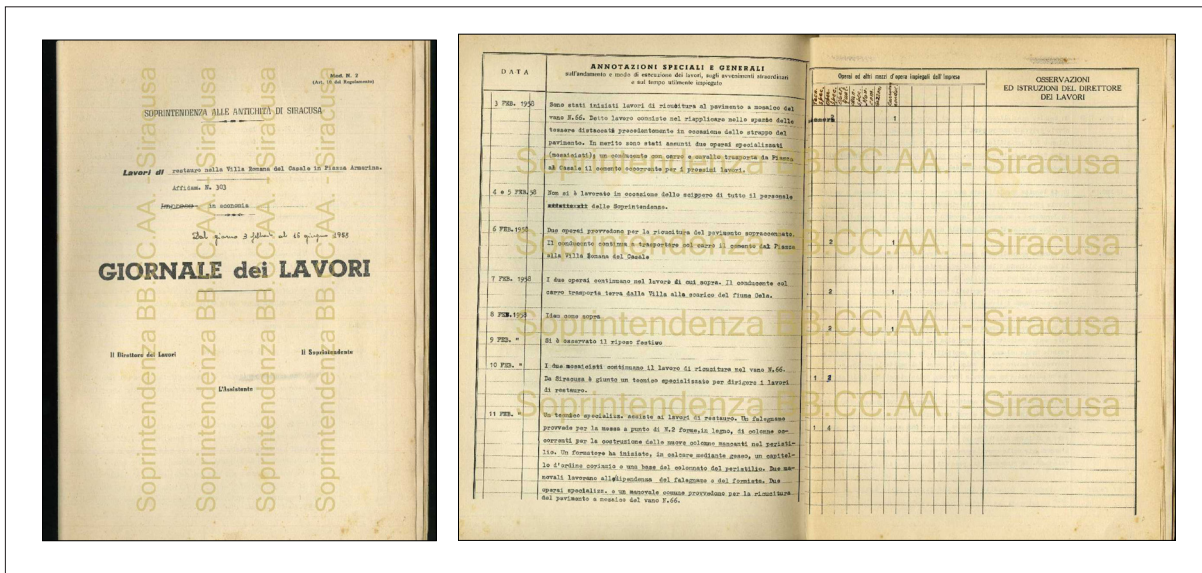 Mod. N. 2
(Art. 15 del Regolamento)
SOPRINTENDENZA ALLE ANTICHITÀ DI SIRACUSA
Lavori di restauro nella Villa Romana del Casale in Piazza Armerina.
Affidam. N. 303
Impresa in economia
Dal giorno 3 febbraio al 15 giugno 1958
GIORNALE dei LAVORI
Il Direttore dei Lavori
Il Soprintendente
L'Assistente
Soprintendenza BB.CC.AA. - Siracusa
Soprintendenza BB.CC.AA. - Siracusa
Soprintendenza BB.CC.AA. - Siracusa
Soprintendenza BB.CC.AA. - Siracusa
DATA
ANNOTAZIONI SPECIALI E GENERALI
sull'andamento e modo di esecuzione dei lavori, sugli avvenimenti straordinari
e sul tempo utilmente impiegato
Operai ed altri mezzi d'opera impiegati dall'Impresa
OSSERVAZIONI
ED ISTRUZIONI DEL DIRETTORE
DEI LAVORI
3 FEB. 1958 Sono stati iniziati lavori di ricucitura al pavimento a mosaico del
vano N.66. Detto lavoro consiste nel riapplicare nello spazio delle
tessere distaccate precedentemente in occasione dello strappo del
pavimento. In merito sono stati assunti due operai specializzati
(mosaicisti); un conducente con carro e cavallo trasporta da Piazza
al Casale il cemento occorrente per i precisi lavori.
1
4 e 5 FEB.58 Non si è lavorato in occasione dello sciopero di tutto il personale
delle Soprintendenze.
6 FEB.1958 Due operai provvedono per la ricucitura del pavimento sopraccennato.
Il conducente continua a trasportare col carro il cemento dal Piazza
alla Villa Romana del Casale
2 1
7 FEB. 1958 I due operai continuano nel lavoro di cui sopra. Il conducente col
carro trasporta terra dalla Villa alla scarico del fiume Gela.
2 1
8 FEB.1958 Idem come sopra
2 1
9 FEB. " Si è osservato il riposo festivo
10 FEB. " I due mosaicisti continuano il lavoro di ricucitura nel vano N.66.
Da Siracusa è giunto un tecnico specializzato per dirigere i lavori
di restauro.
1 2
11 FEB. " Un tecnico specializz. assiste ai lavori di restauro. Un falegname
provvede per la messa a punto di N.2 forme,in legno, di colonne oc-
correnti per la costruzione delle nuove colonne mancanti nel peristi-
lio. Un formatore ha iniziato, in calcare mediante gesso, un capitel-
lo d'ordine corinzio e una base del colonnato del peristilio. Due ma-
novali lavorano alla dipendenza del falegname e del formista. Due
operai specializz. e un manovale comune provvedono per la ricucitura
del pavimento a mosaico del vano N.66.
1 4
Soprintendenza BB.CC.AA. - Siracusa
Soprintendenza BB.CC.AA. - Siracusa
Soprintendenza BB.CC.AA. - Siracusa
Soprintendenza BB.CC.AA. - Siracusa